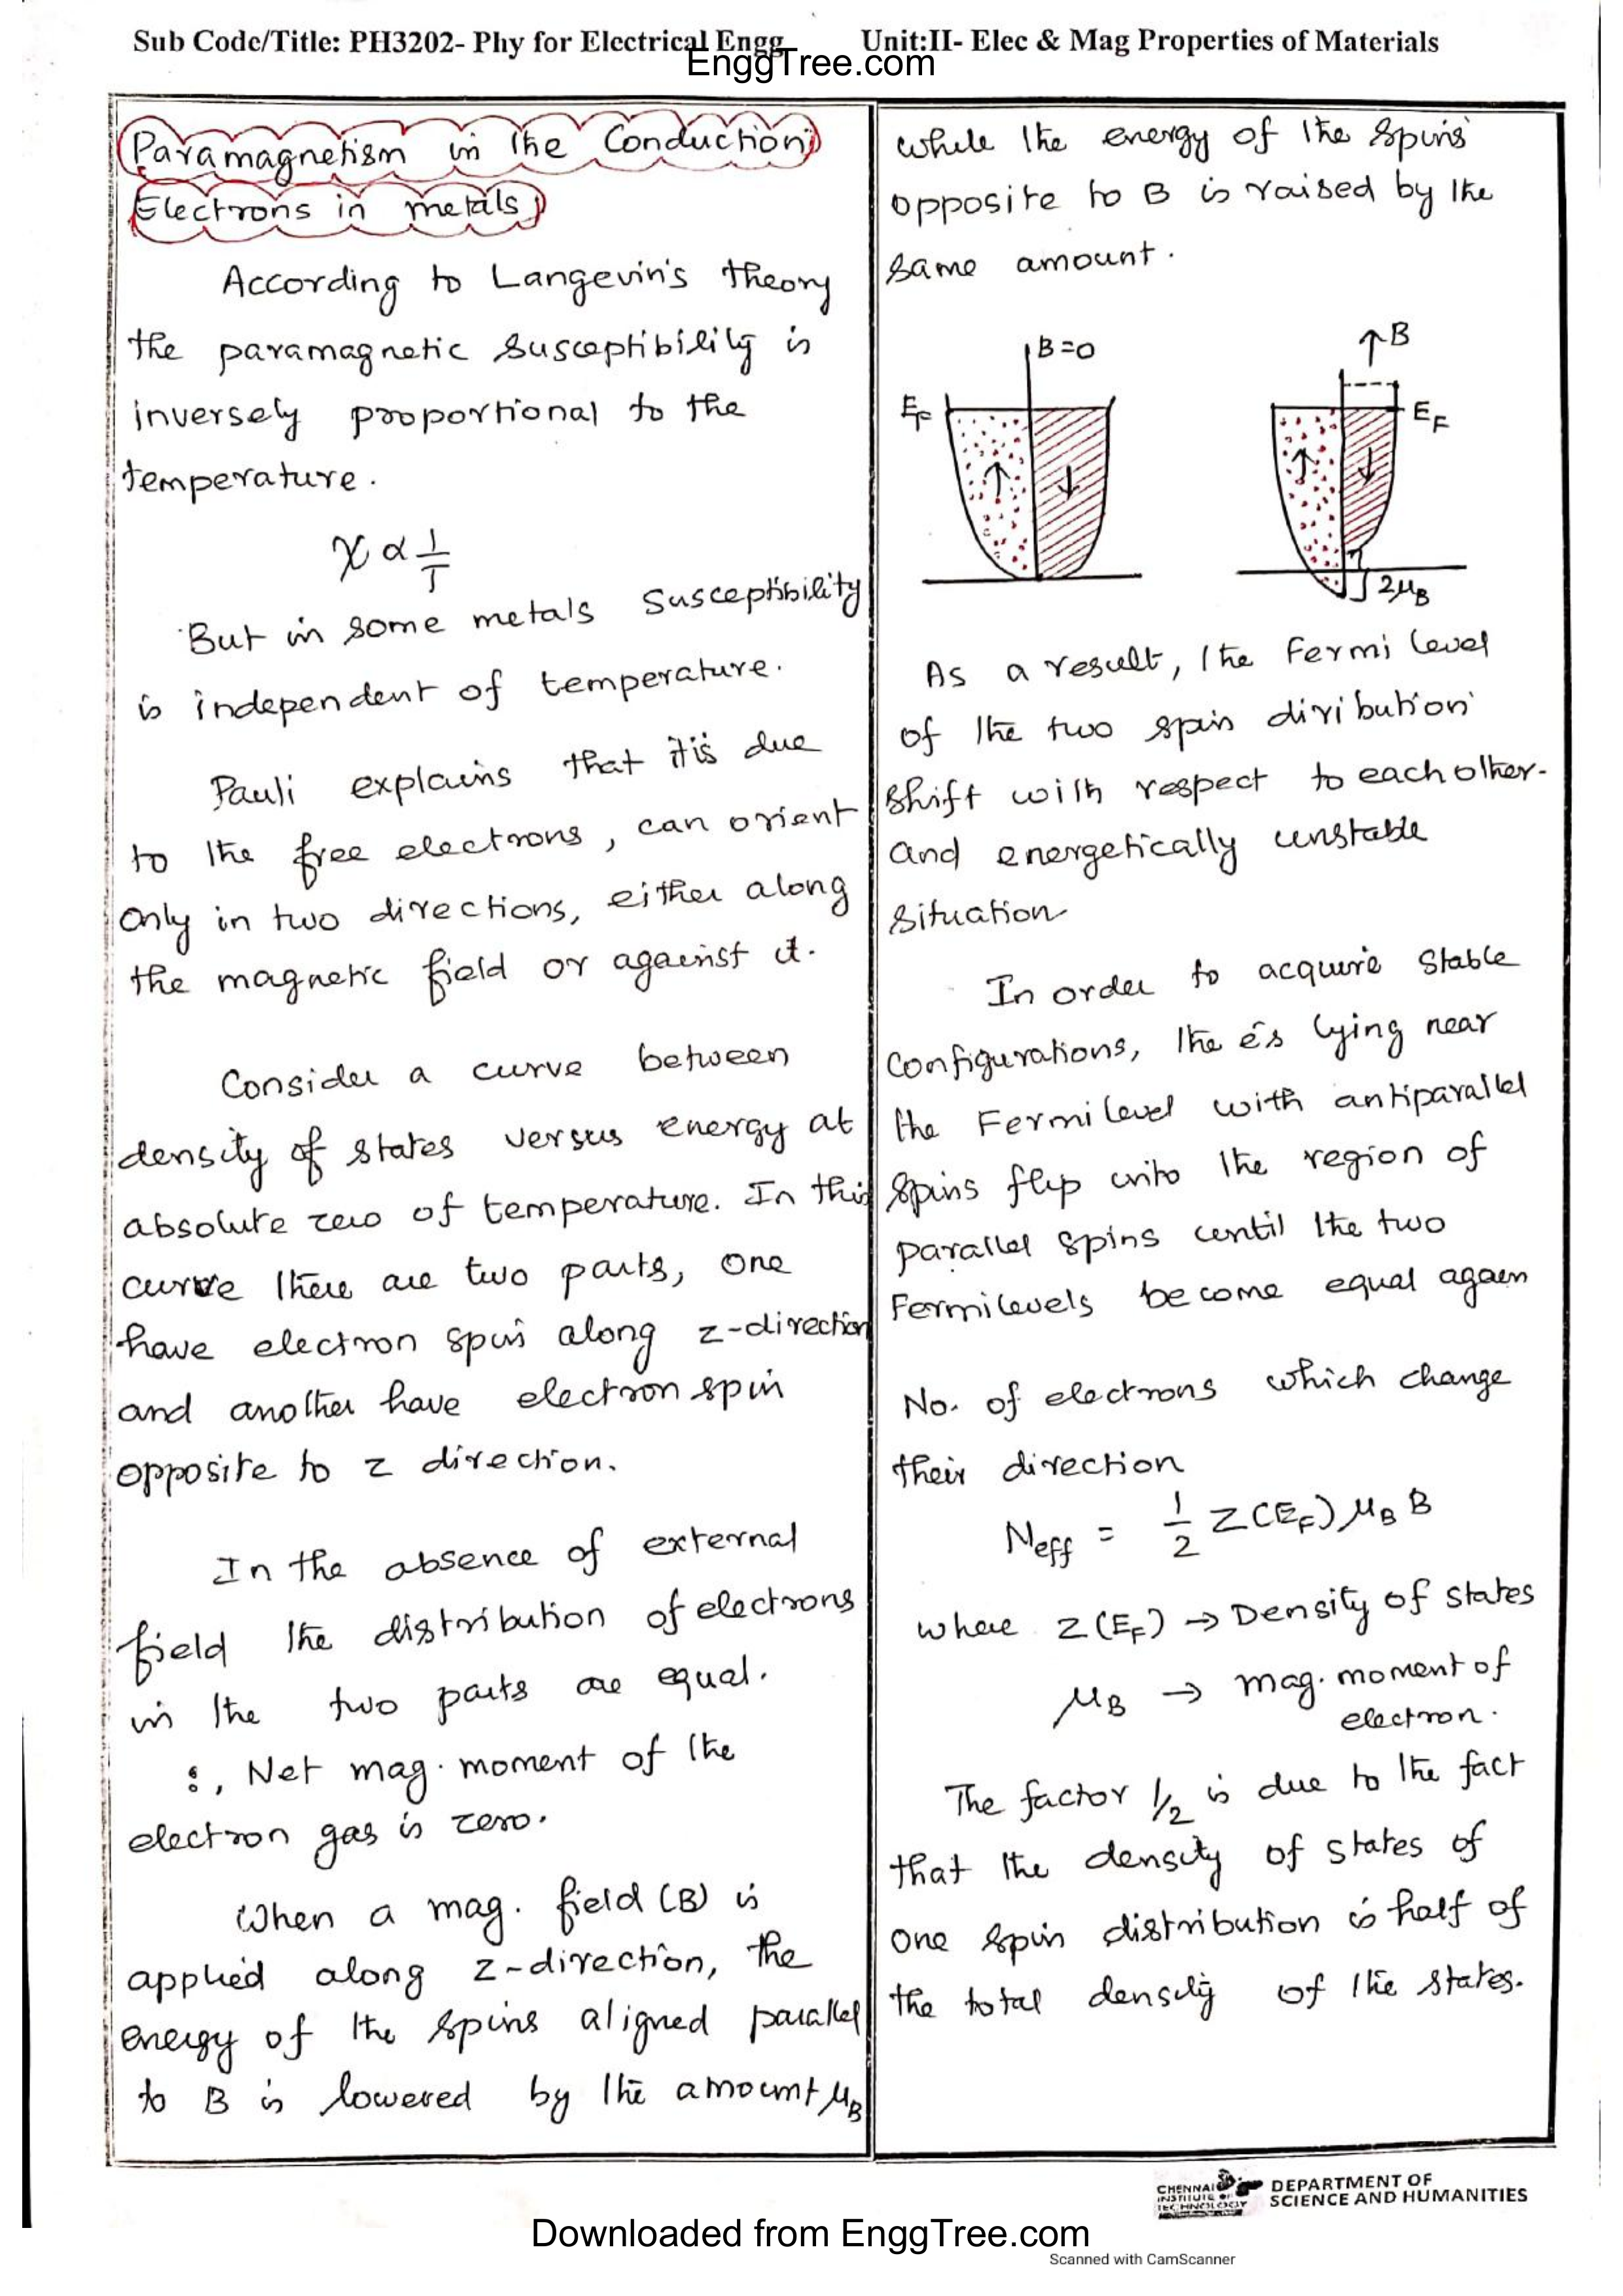 Sub Code/Title: PH3202- Phy for Electrical Engg Unit:II- Elec & Mag Properties of Materials
EnggTree.com
Paramagnetism in the Conduction
Electrons in metals
According to Langevin's theory
the paramagnetic susceptibility is
inversely proportional to the
temperature.
χ ∝ 1/T
But in some metals susceptibility
is independent of temperature.
Pauli explains that it is due
to the free electrons, can orient
only in two directions, either along
the magnetic field or against it.
Consider a curve between
density of states versus energy at
absolute zero of temperature. In this
curve there are two parts, one
have electron spin along z-direction
and another have electron spin
opposite to z direction.
In the absence of external
field the distribution of electrons
in the two parts are equal.
∴, Net mag. moment of the
electron gas is zero.
When a mag. field (B) is
applied along z-direction, the
energy of the spins aligned parallel
to B is lowered by the amount μB
while the energy of the spins
opposite to B is raised by the
same amount.
B=0
↑B
EF
EF
↑ ↓
↑ ↓
2μB
As a result, the Fermi level
of the two spin diribution
shift with respect to each other.
and energetically unstable
situation
In order to acquire stable
configurations, the e's lying near
the Fermi level with antiparallel
spins flip into the region of
parallel spins until the two
Fermi levels become equal again
No. of electrons which change
their direction
Neff = 1/2 Z(EF) μB B
where Z(EF) → Density of states
μB → mag. moment of
electron.
The factor 1/2 is due to the fact
that the density of states of
one spin distribution is half of
the total density of the states.
CHENNAI
INSTITUTE OF
TECHNOLOGY
DEPARTMENT OF
SCIENCE AND HUMANITIES
Downloaded from EnggTree.com
Scanned with CamScanner